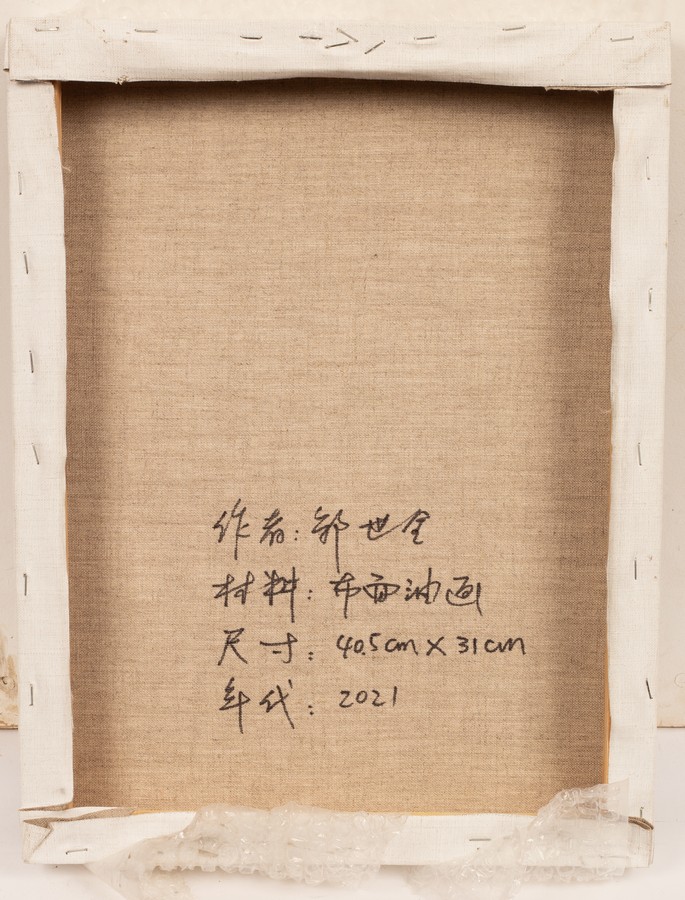 作者：郭世全
材料：布面油画
尺寸：40.5cm×31cm
年代：2021